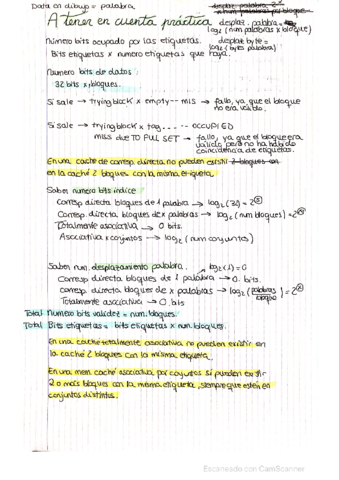 Data en dibujo = palabra
A tener en cuenta práctica
desplaz. palabra =
log₂ (num palabras x bloque)
Número bits ocupado por las etiquetas.
desplaz byte =
log₂ (bytes palabra)
Bits etiquetas x numero etiquetas que haya.
Numero bits de datos:
32 bits x bloques.
Si sale → trying block x empty -- mis → fallo, ya que el bloque
no era válido.
Si sale → trying block x tag .... → OCCUPIED
miss due TO FULL SET → fallo, ya que el bloque era
válido pero no ha habido
coincidencia de etiquetas.
En una caché de corresp. directa no pueden existir 2 bloques en
en la caché 2 bloques con la misma etiqueta.
Saber número bits índice
Corresp directa bloques de 1 palabra → log₂
Corresp. directa bloques de x palabras → log₂ (num bloques)
Totalmente asociativa → 0 bits.
Asociativa x conjuntos → log₂ (num conjuntos)
Saber num. desplazamiento palabra.
log₂ (1) = 0
Corresp directa bloques de 1 palabra → 0 bits.
corresp directa bloque de x palabras → log₂ (palabras/bloque)
Totalmente asociativa → 0 bits
Total Número bits validez = num. bloques.
Total Bits etiquetas = bits etiquetas x num. bloques.
En una caché totalmente asociativa no pueden existir en
la caché 2 bloques con la misma etiqueta.
En una mem caché asociativa por conjuntos si pueden existir
2 o más bloques con la misma etiqueta, siempre que estén en
conjuntos distintos.
Escaneado con CamScanner